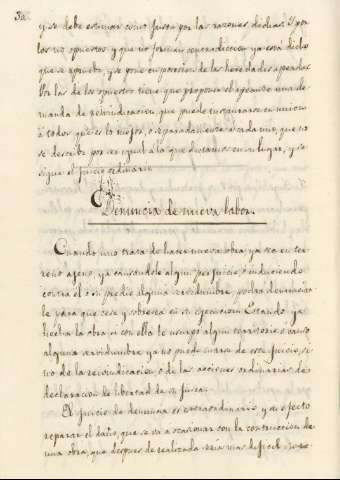 y se debe estimar como juson por las razones dichas. Y por
los no opuestos y que no forman contradiccion ya está dicho
que se aprueba, y se pone en posesion de las heredades apeadas.
Por las de los opuestos tiene que proponer el apeante una de-
manda de reivindicacion, que puede instaurarse en union
á todos que es lo mejor, o separadamente a cada uno, que no
se describe por ser igual a la que diseñamos en su lugar, y se
sigue el juicio ordinario.
Denuncia de nueva labor.
Cuando uno trata de hacer nueva obra ya sea en ter-
reño ageno, ya causandole algun perjuicio, o induciendo
contra el o su predio alguna servidumbre, podra denunciar-
le para que cese y sobresea en su ejecucion. Estando ya
hecha la obra, si con ella te usurpó algun territorio o causó
alguna servidumbre ya no puede usarse de este juicio, si-
no de la reivindicacion, o de las acciones ordinarias de
declaracion de libertad de su finca.
El juicio de denuncia es extraordinario y su efecto
reparar el daño, que se va a ocasionar con la continuacion de
una obra, que despues de realizada sería mas dificil